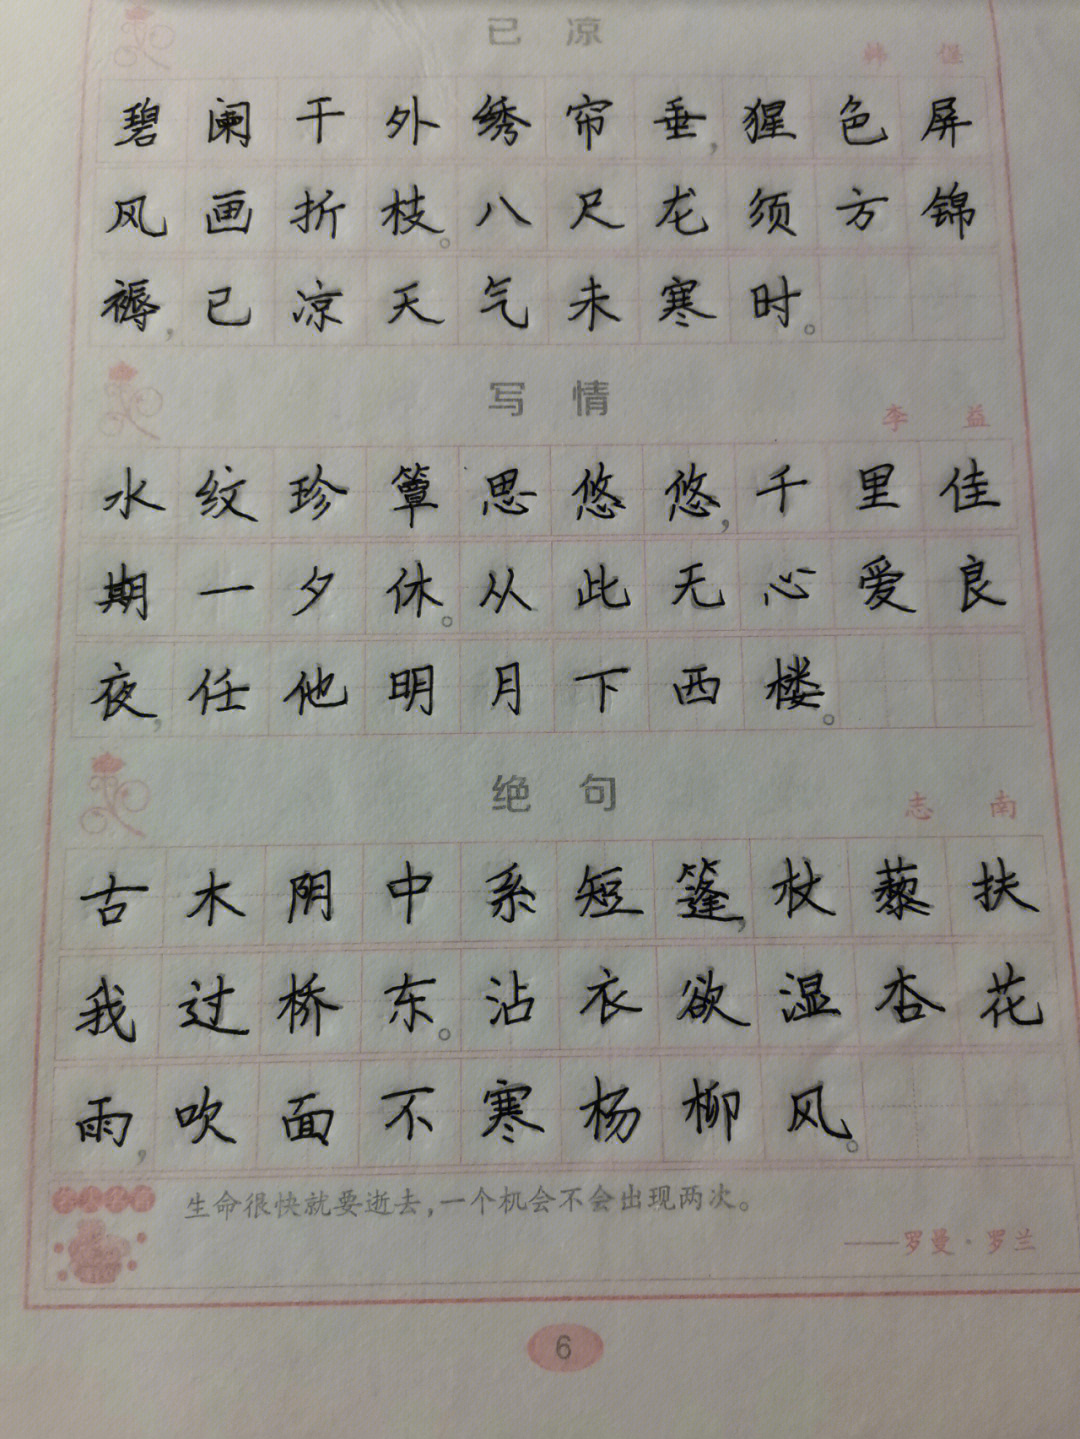 已凉
韩偓
碧阑干外绣帘垂,猩色屏
风画折枝。八尺龙须方锦
褥,已凉天气未寒时。
写情
李益
水纹珍簟思悠悠,千里佳
期一夕休。从此无心爱良
夜,任他明月下西楼。
绝句
志南
古木阴中系短篷,杖藜扶
我过桥东。沾衣欲湿杏花
雨,吹面不寒杨柳风。
生命很快就要逝去,一个机会不会出现两次。
——罗曼·罗兰
6